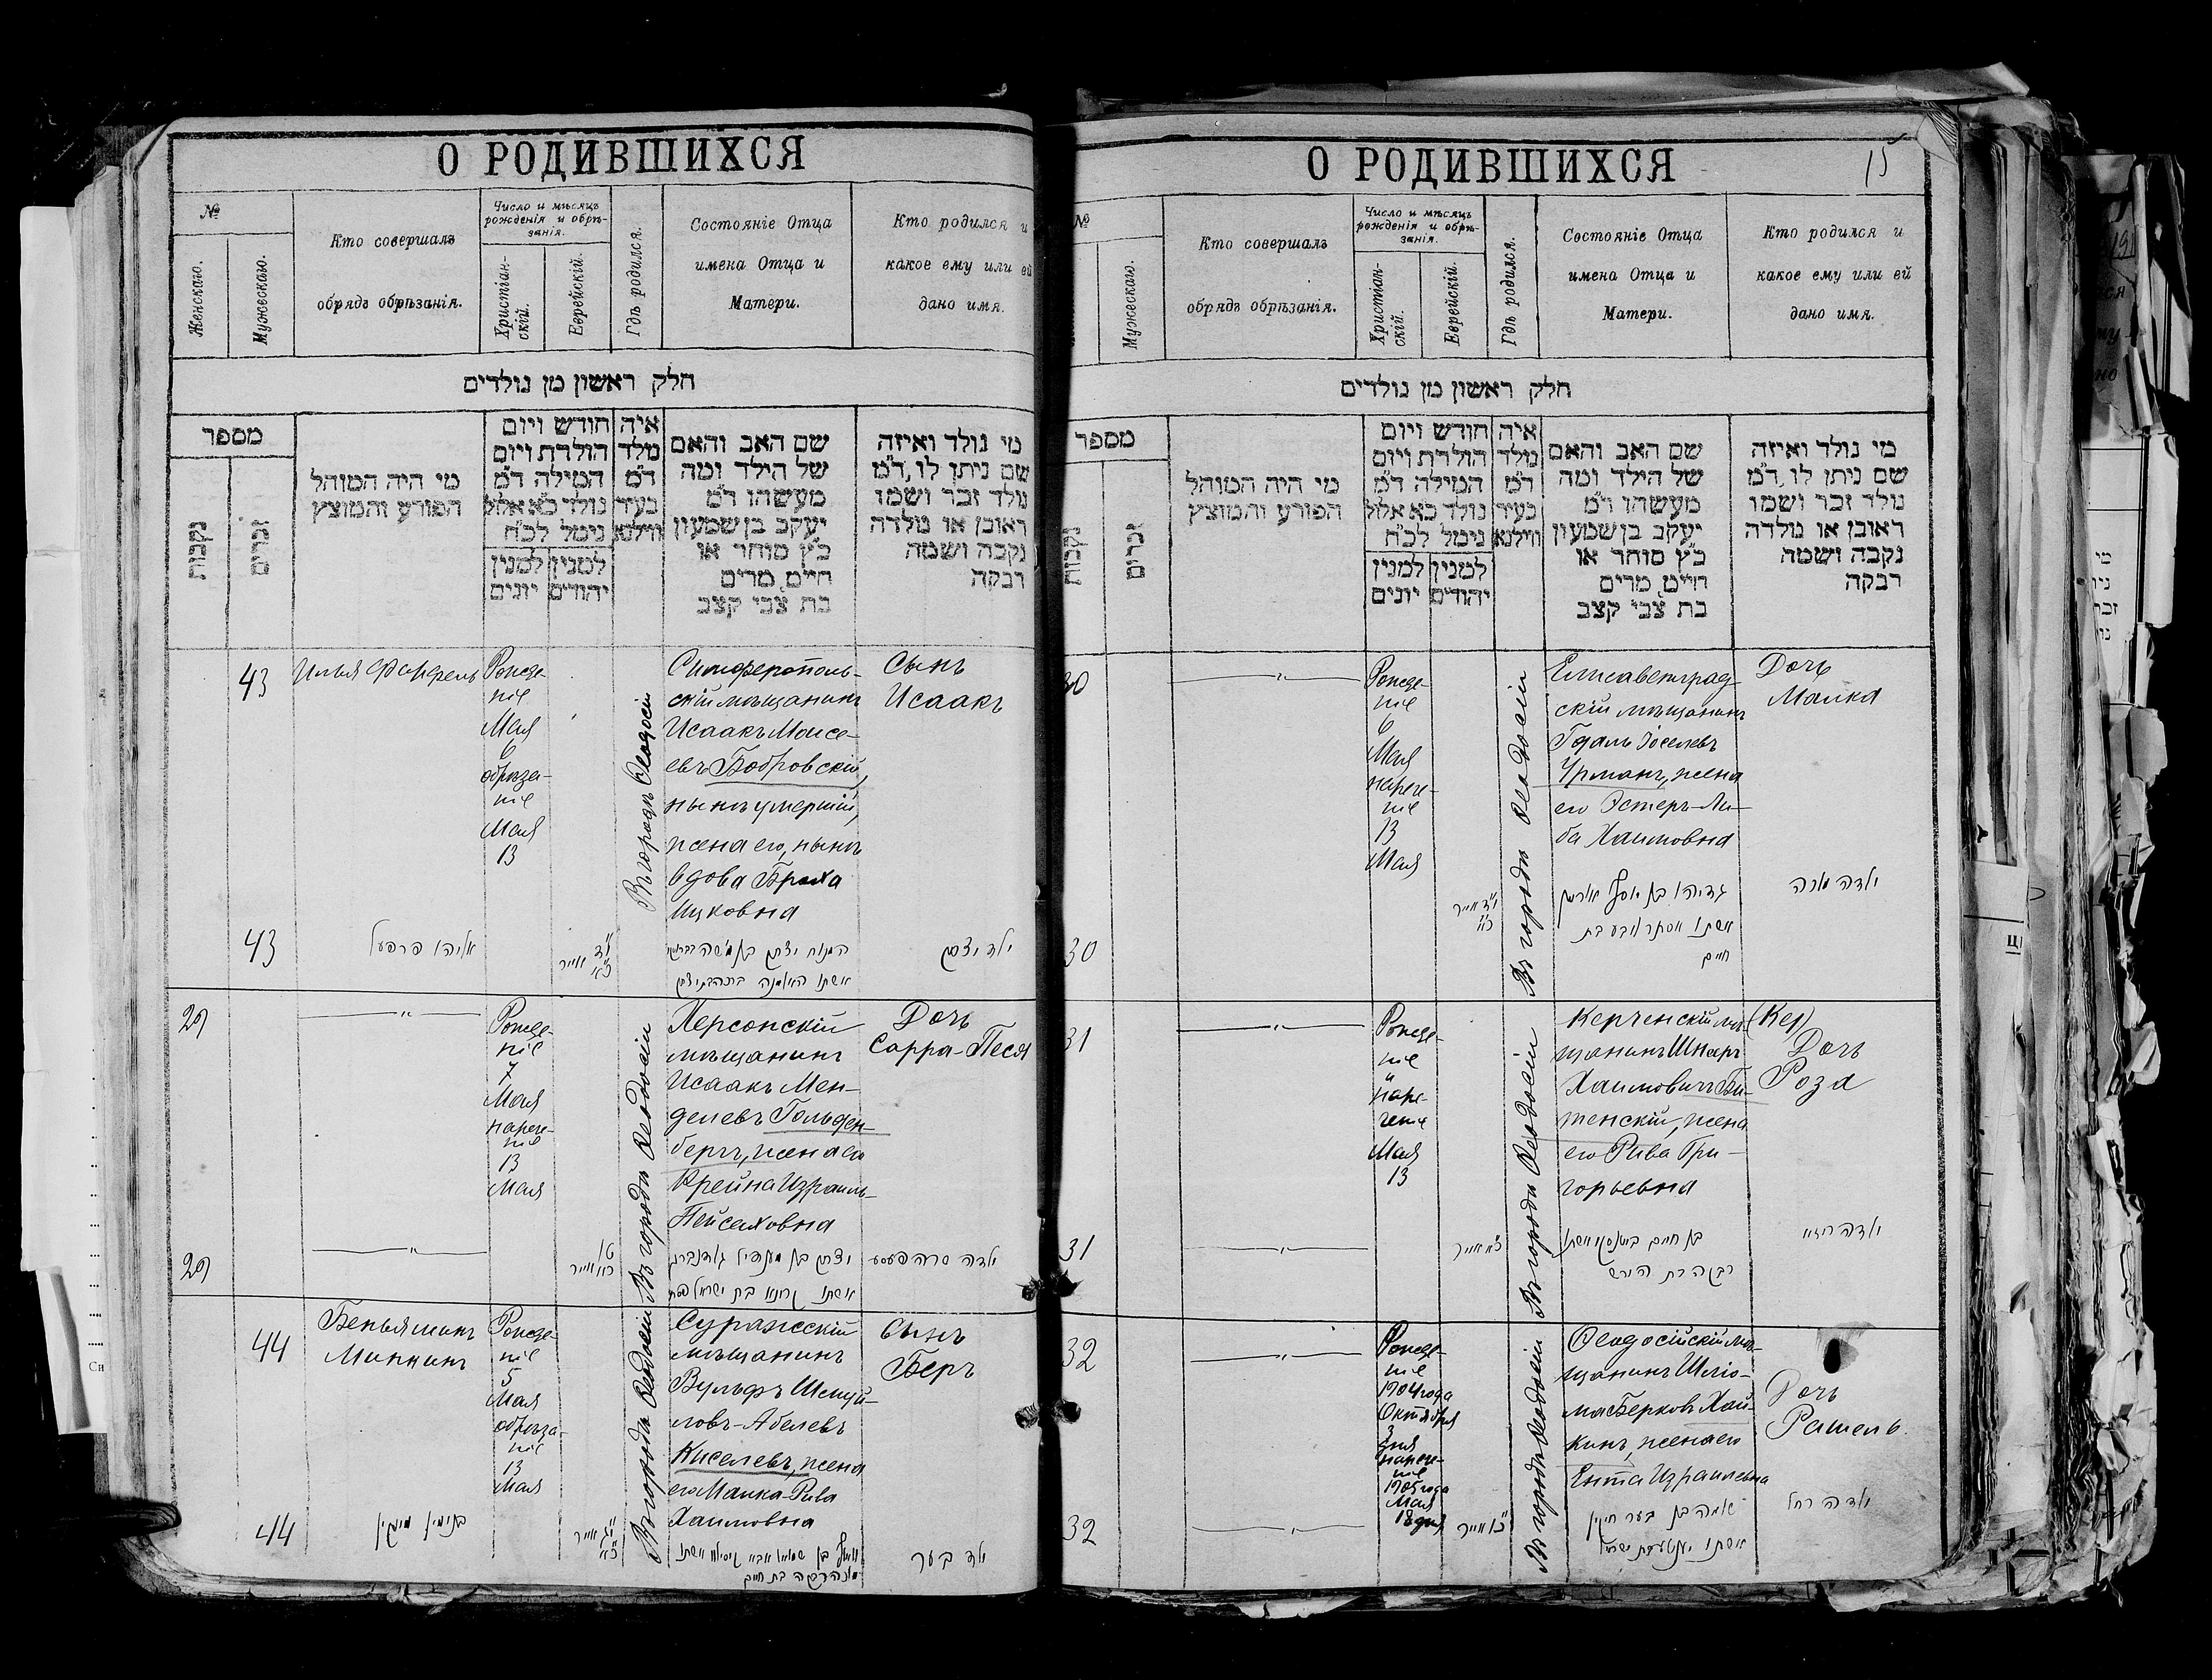 О РОДИВШИХСЯ
№
Женскаго.
Мужескаго.
Кто совершалъ
обрядъ обрѣзанія.
Число и мѣсяцъ
рожденія и обрѣ-
занія.
Христіан-
скій.
Еврейскій.
Гдѣ родился.
Состояніе Отца
имена Отца и
Матери.
Кто родился и
какое ему или ей
дано имя.
חלק ראשון מן נולדים
מספר
נקבות
זכרים
מי היה המוהל
הפורע והמוצץ
חודש ויום
הולדת ויום
המילה ד״מ
נולד כ״א אלול
נימל לכ״ח
למנין למנין
יהודים יונים
איה
נולד
ד״מ
בעיר
ווילנא
שם האב והאם
של הילד ומה
מעשהו ד״מ
יעקב בן שמעון
כ״ץ סוחר או
חייט, מרים
בת צבי קצב
מי נולד ואיזה
שם ניתן לו, ד״מ
נולד זכר ושמו
ראובן או נולדה
נקבה ושמה
רבקה
43
Илья Фанфель
Рожде-
ніе
Мая
6
обрѣза-
ніе
Мая
13
Въ городѣ Ѳеодосіи
Симферополь-
скій мѣщанинъ
Исаакъ Моисе-
евъ Бобровскій,
нынѣ умершій,
жена его, нынѣ
вдова Браха
Ицковна
Сынъ
Исаакъ
43
ילד יצחק
29
—„—
Рожде-
ніе
7
Мая
нарече-
ніе
13
Мая
Въ городѣ Ѳеодосіи
Херсонскій
мѣщанинъ
Исаакъ Мен-
делевъ Гольден-
бергъ, жена его
Крейна Израиль-
Пейсаховна
Дочь
Сарра-Песя
29
—„—
ילדה שרה פעסע
44
Беньяминъ
Минкинъ
Рожде-
ніе
5
Мая
обрѣза-
ніе
13
Мая
Въ городѣ Ѳеодосіи
Суражскій
мѣщанинъ
Вульфъ Шмуй-
ловъ-Абелевъ
Киселевъ, жена
его Малка-Рива
Хаимовна
Сынъ
Беръ
44
בנימין מינקין
ילד בער
О РОДИВШИХСЯ
15
№
Мужескаго.
Кто совершалъ
обрядъ обрѣзанія.
Число и мѣсяцъ
рожденія и обрѣ-
занія.
Христіан-
скій.
Еврейскій.
Гдѣ родился.
Состояніе Отца
имена Отца и
Матери.
Кто родился и
какое ему или ей
дано имя.
חלק ראשון מן נולדים
מספר
נקבות
זכרים
מי היה המוהל
הפורע והמוצץ
חודש ויום
הולדת ויום
המילה ד״מ
נולד כ״א אלול
נימל לכ״ח
למנין למנין
יהודים יונים
איה
נולד
ד״מ
בעיר
ווילנא
שם האב והאם
של הילד ומה
מעשהו ד״מ
יעקב בן שמעון
כ״ץ סוחר או
חייט, מרים
בת צבי קצב
מי נולד ואיזה
שם ניתן לו, ד״מ
נולד זכר ושמו
ראובן או נולדה
נקבה ושמה
רבקה
30
—„—
Рожде-
ніе
6
Мая
нарече-
ніе
13
Мая
Въ городѣ Ѳеодосіи
Елисаветград-
скій мѣщанинъ
Гдаль Іоселевъ
Урманъ, жена
его Эстеръ-Ли-
ба Хаимовна
Дочь
Малка
30
אשתו אסתר ליבע בת
חיים
31
—„—
Рожде-
ніе
„
наре-
ченіе
Мая
13
Въ городѣ Ѳеодосіи
Керченскій мѣ-
щанинъ Шнеръ
Хаимовичъ Би-
тенскій, жена
его Рива Гри-
горьевна
(Кер)
Дочь
Роза
31
—„—
רבקה בת הירש
ילדה רוזא
32
—„—
Рожде-
ніе
1904 года
Октября
3
дня
нарече-
ніе
1905 года
Мая
18 дня
Въ городѣ Ѳеодосіи
Ѳеодосійскій мѣ-
щанинъ Шліо-
ма Берковъ Хай-
кинъ, жена его
Ента Израилевна
Дочь
Рашель.
32
—„—
שלמה בן בער חייקין
ילדה רחל